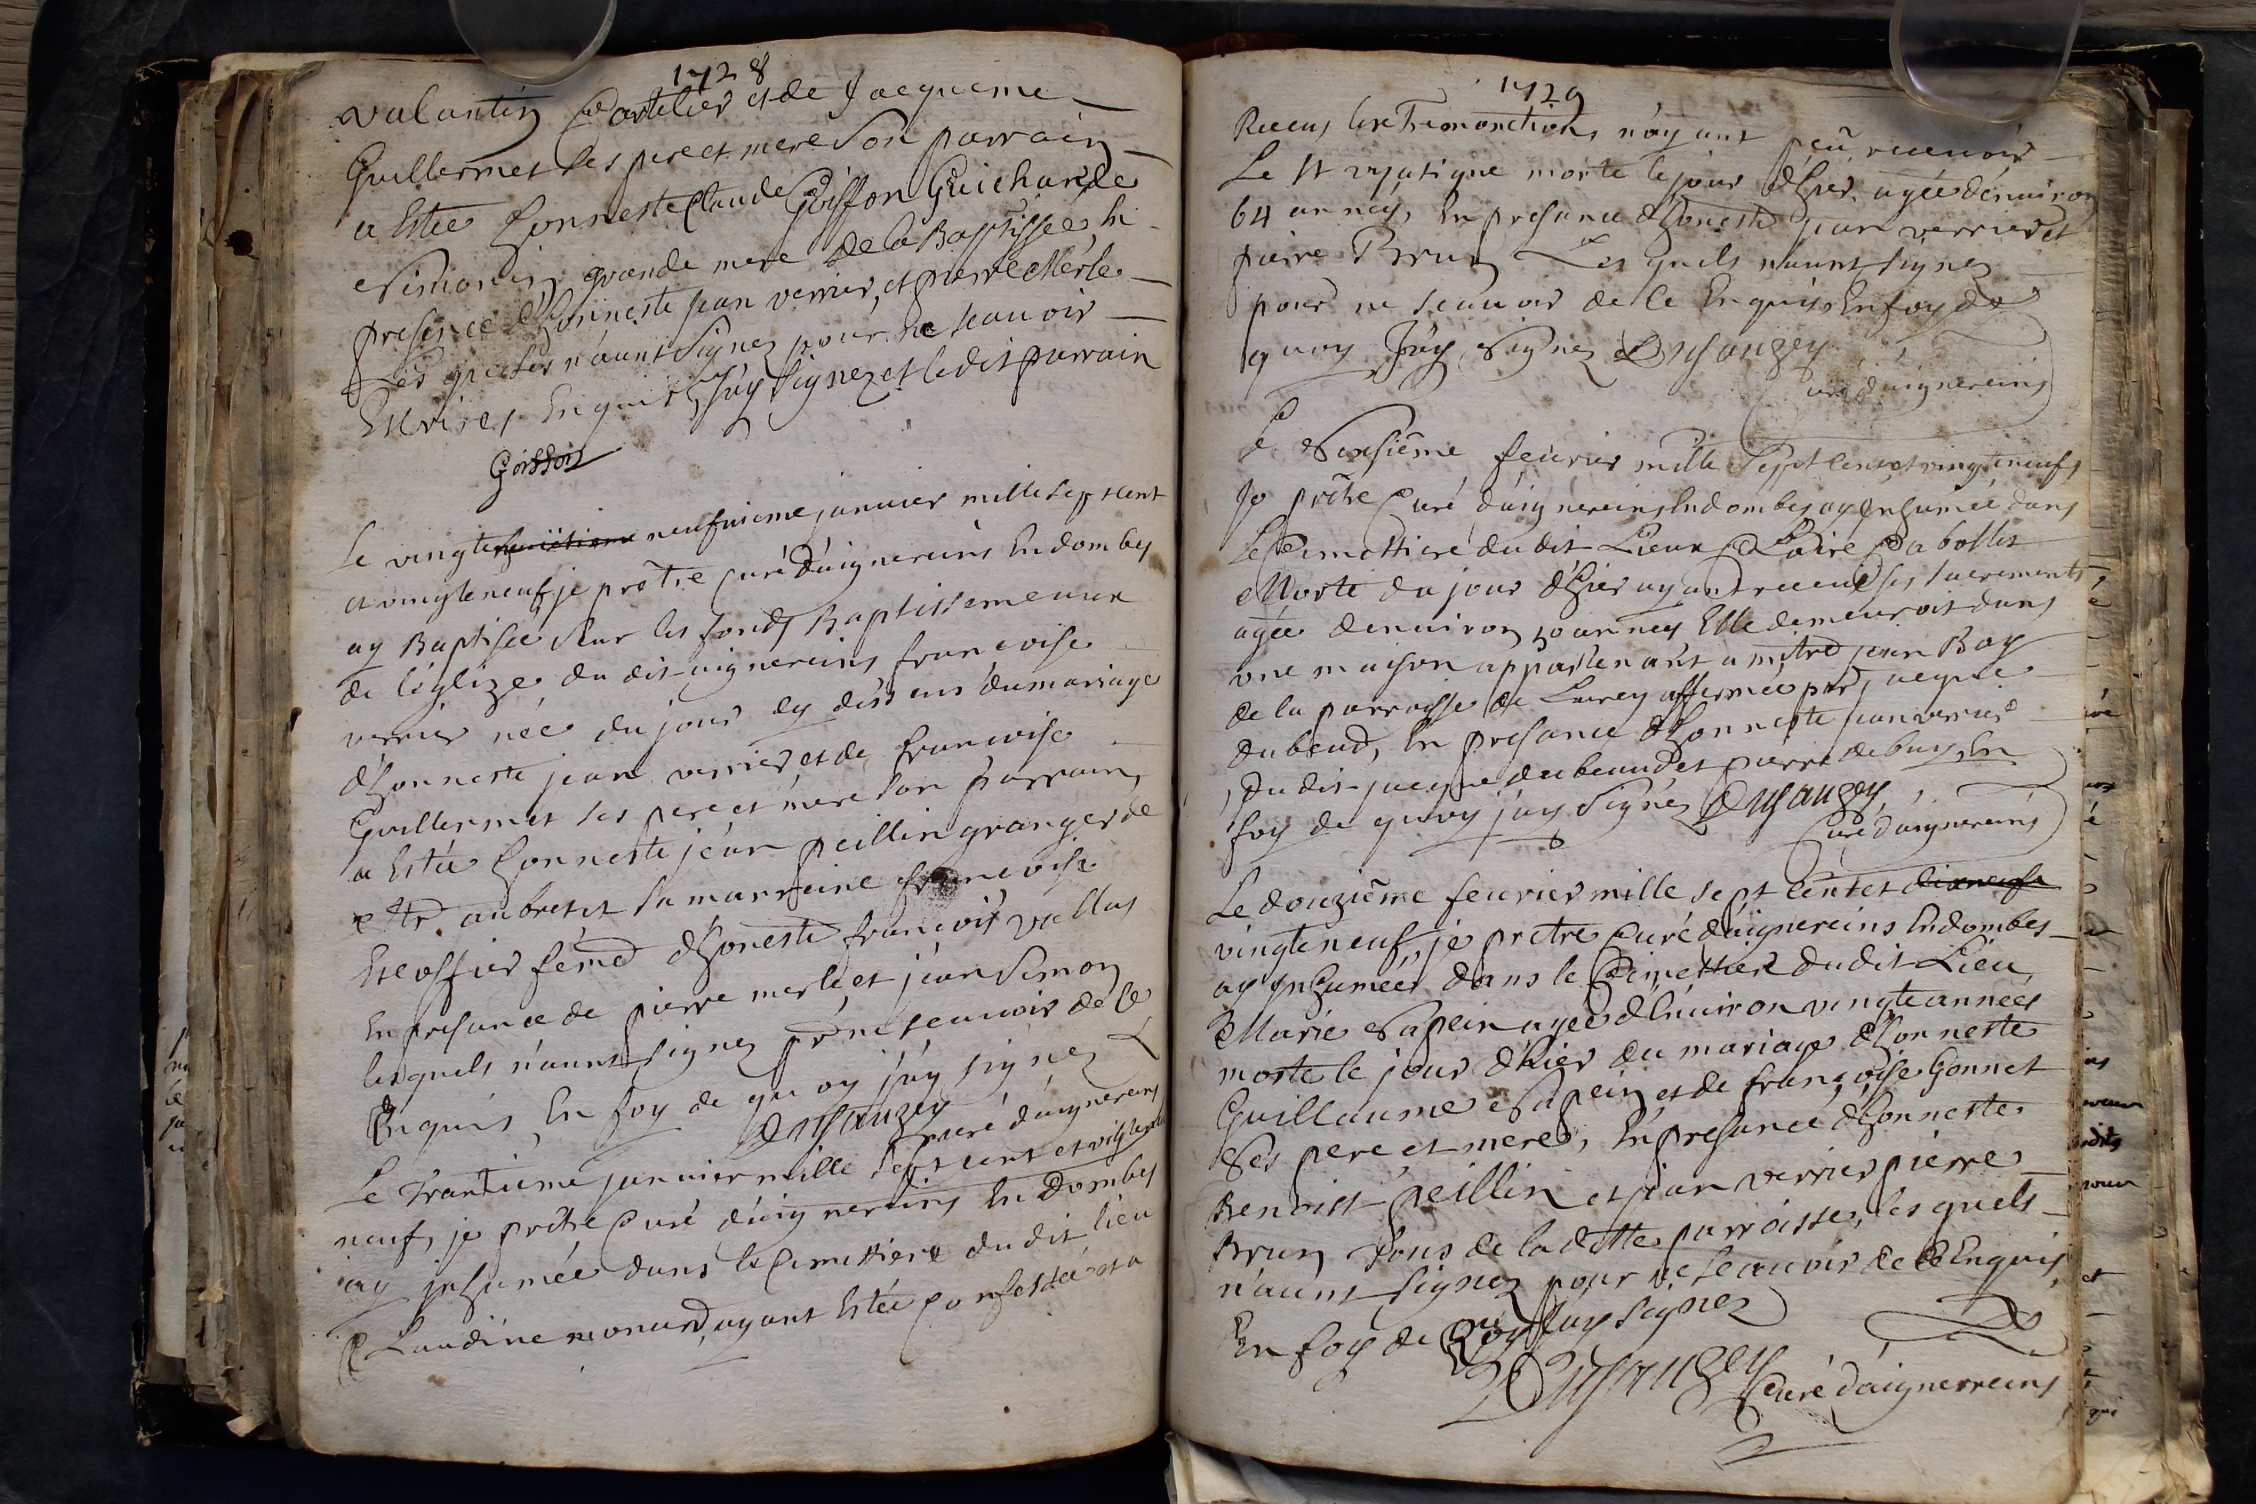 1728
valantin Cartelier et de Jacqueme
Guillermet ses pere et mere Son parrain
a Estée honneste Claude Goiffon Guicharde
Simonin grande mere de la Baptissée, hi
presence d'honneste jean verrier, et pierre Merle
Les quels n'aunt Signez pour ne scauoir
Escrire, Enquis, J'ay Signez et le dit parrain
Goiffon
Le vingte huictieme neufuieme januier mille sept cent
et vingte neuf, je prêtre curé d'aignereins En dombes
ay Baptisée Sur les fonds Baptissemeaux
de l'eglize du dit aignereins francoise
verrier née du jour cy dessus du mariage
d'honneste jean verrier et de francoise
Guillermet ses pere et mere son parrain
a Estée honneste jean peillin granger de
Mr aubret et sa marreine francoise
femme d'honeste francois vallas
En presance de pierre merle, et jean Simon
lesquels n'aunt signez pr ne scauoir de le
Enquis, En foy de quoy j'ay signez
Dusauzey curé d'aignereins
Le Trantieme januier mille sept cent et vigte
neuf, je prêtre Curé d'aignereins En Dombes
ay jnhumée dans le Cimettiere du dit lieu
Claudine monard, ayant Estée confessée et a
1729
Receus n'ayant peu receuoir
Le St vyatique morte le jour d'hier, agée d'enuiron
64 années, En presance d'honeste jean verrier et
pierre Brun Les quels n'aunt signez
pour ne scauoir de le Enquis En foy de
quoy J'ay Signez Dusauzey
curé d'aignereins
Le Sixsiême feurier mille Sept Cent et vingte neuf,
Je prêtre Curé d'aignereins En dombes ay jnhumée dans
Le Cimettiere du dit Lieu Claire
Morte du jour d'hier ayant receue ses sacrements,
agée denuiron 50 années Elle demeuroit dans
une maison appartenant a mître jean Bay
de la parroisse de Lurcy affermée par jacque
dubeaud, En presance d'honneste jean verrier
du dit jacque dubeaud et pierre debuis, En
foy de quoy j'ay Signez Dusauzey
Curé d'aignereins
Le douziême feurier mille sept Cent et dixneufe
vingte neuf, je pretre Curé d'aignereins En dombes
ay jnhumée dans le Cimettier du dit Lieu
Marie Sapein agée d'Enuiron vingte années
morte le jour d'hier du mariage d'honneste
Guillaume Sapein et de françoise Gonnet
Ses pere et mere, En presance d'honneste
Benoist peillin et jean verrier pierre
Brun Tous de la ditte parroisse, les quels
n'aunt Signez pour ne scauoir de le Enquis
En foy de Quoy J'ay Signez
Dusauzey
Curé d'aignerreins